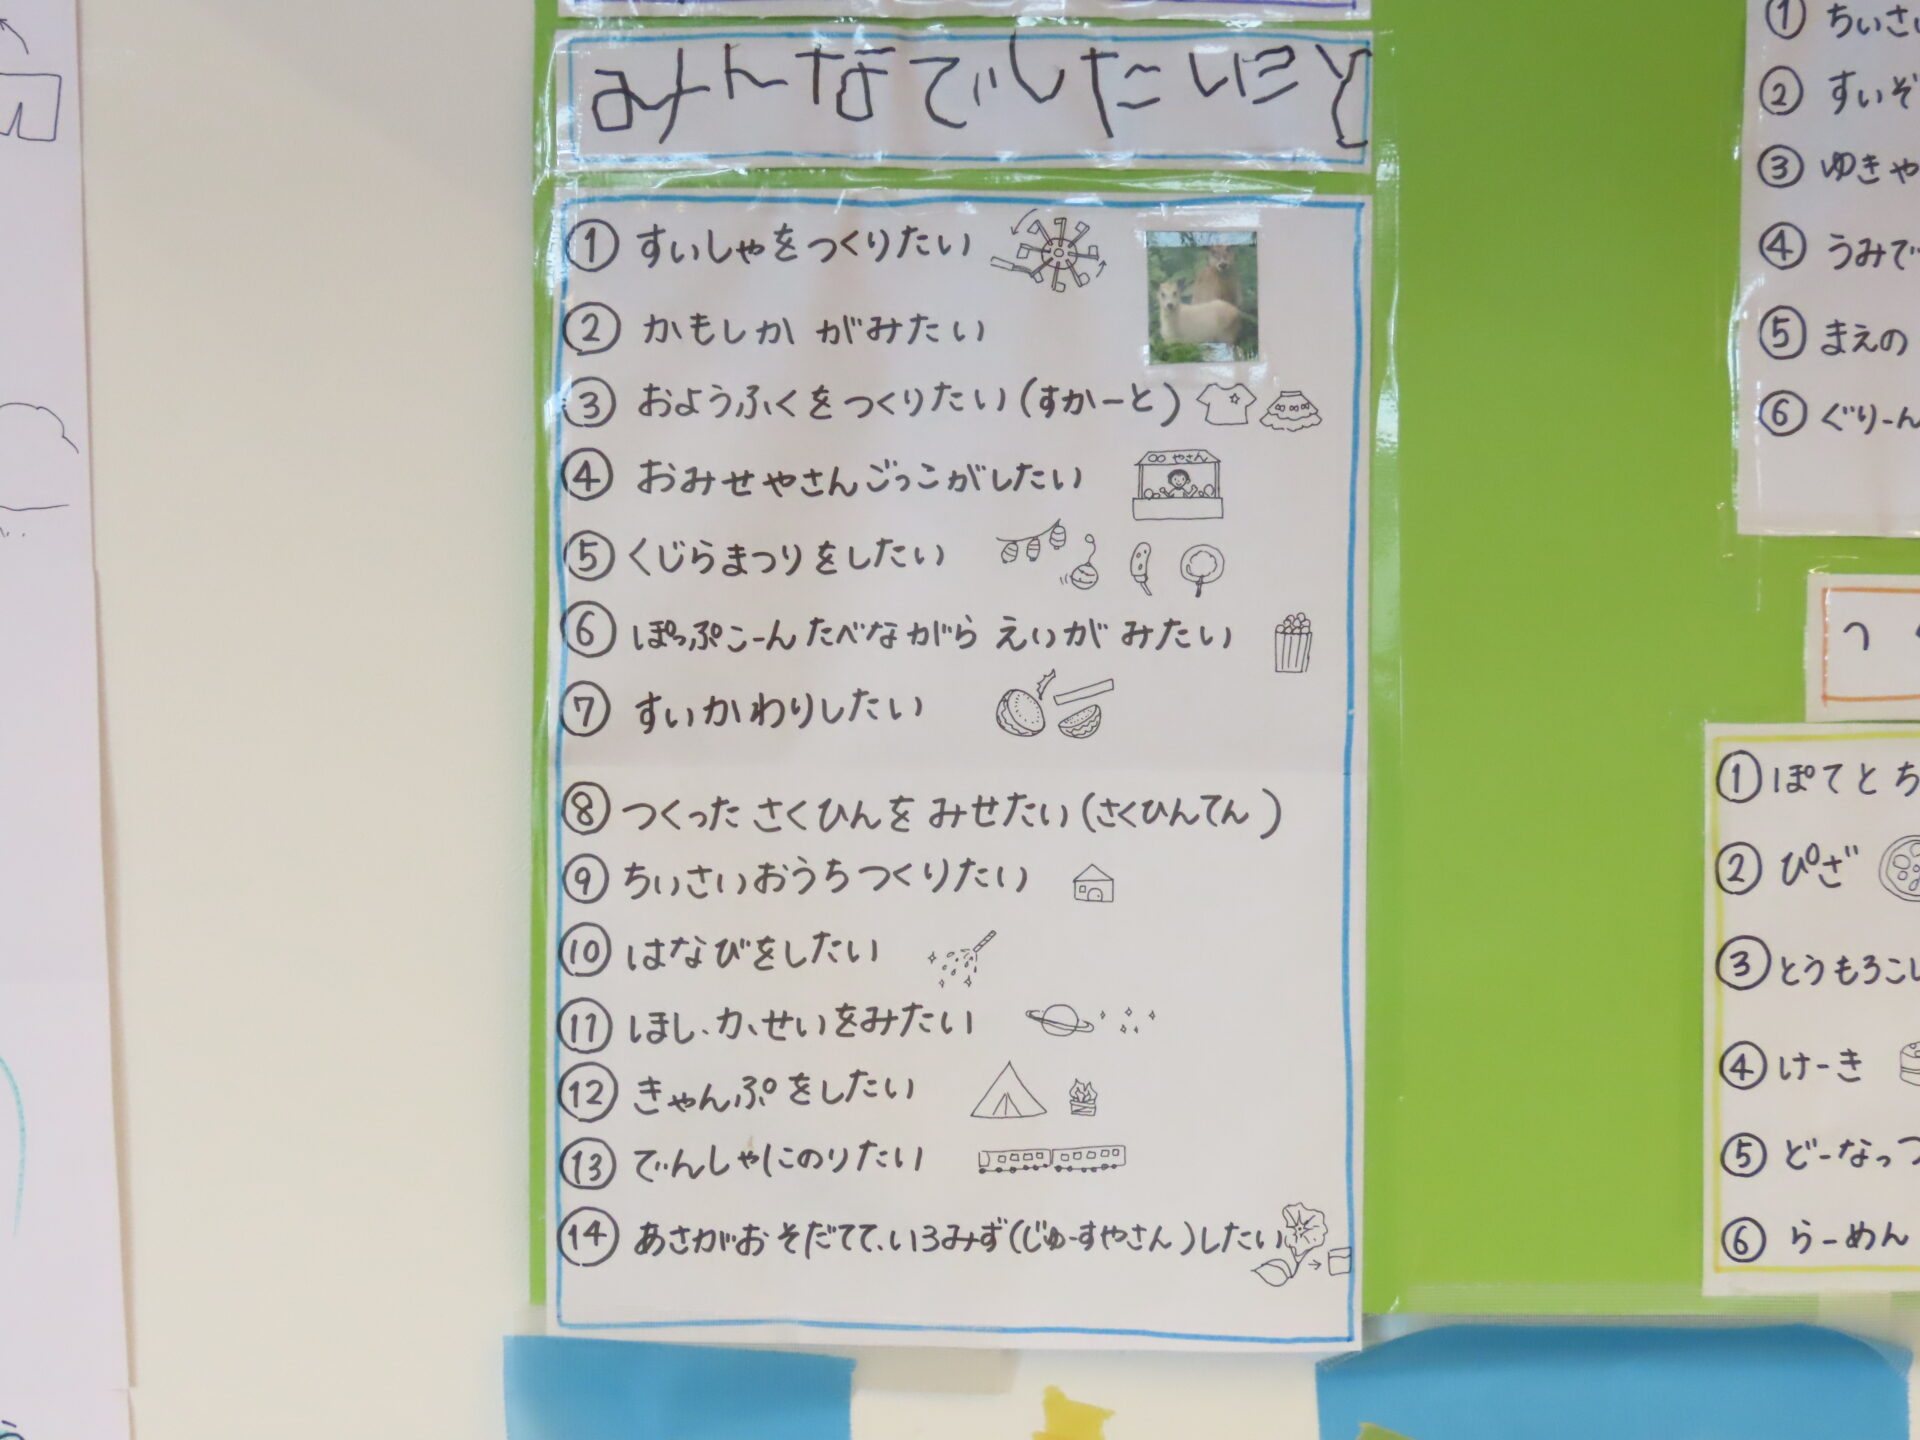 みんなでしたいこと
① すいしゃをつくりたい
② かもしか がみたい
③ おようふくをつくりたい(すかーと)
④ おみせやさんごっこがしたい
○○やさん
⑤ くじらまつりをしたい
⑥ ぽっぷこーん たべながら えいが みたい
⑦ すいかわりしたい
⑧ つくった さくひんを みせたい(さくひんてん)
⑨ ちいさいおうちつくりたい
⑩ はなびをしたい
⑪ ほし、か、せいをみたい
⑫ きゃんぷをしたい
⑬ でんしゃにのりたい
⑭ あさがおそだてて、いろみず(じゅーすやさん)したい
① ちいさ
② すいぞ
③ ゆきや
④ うみで
⑤ まえの
⑥ ぐりーん
つ
① ぽてとち
② ぴざ
③ とうもろこし
④ けーき
⑤ どーなっつ
⑥ らーめん